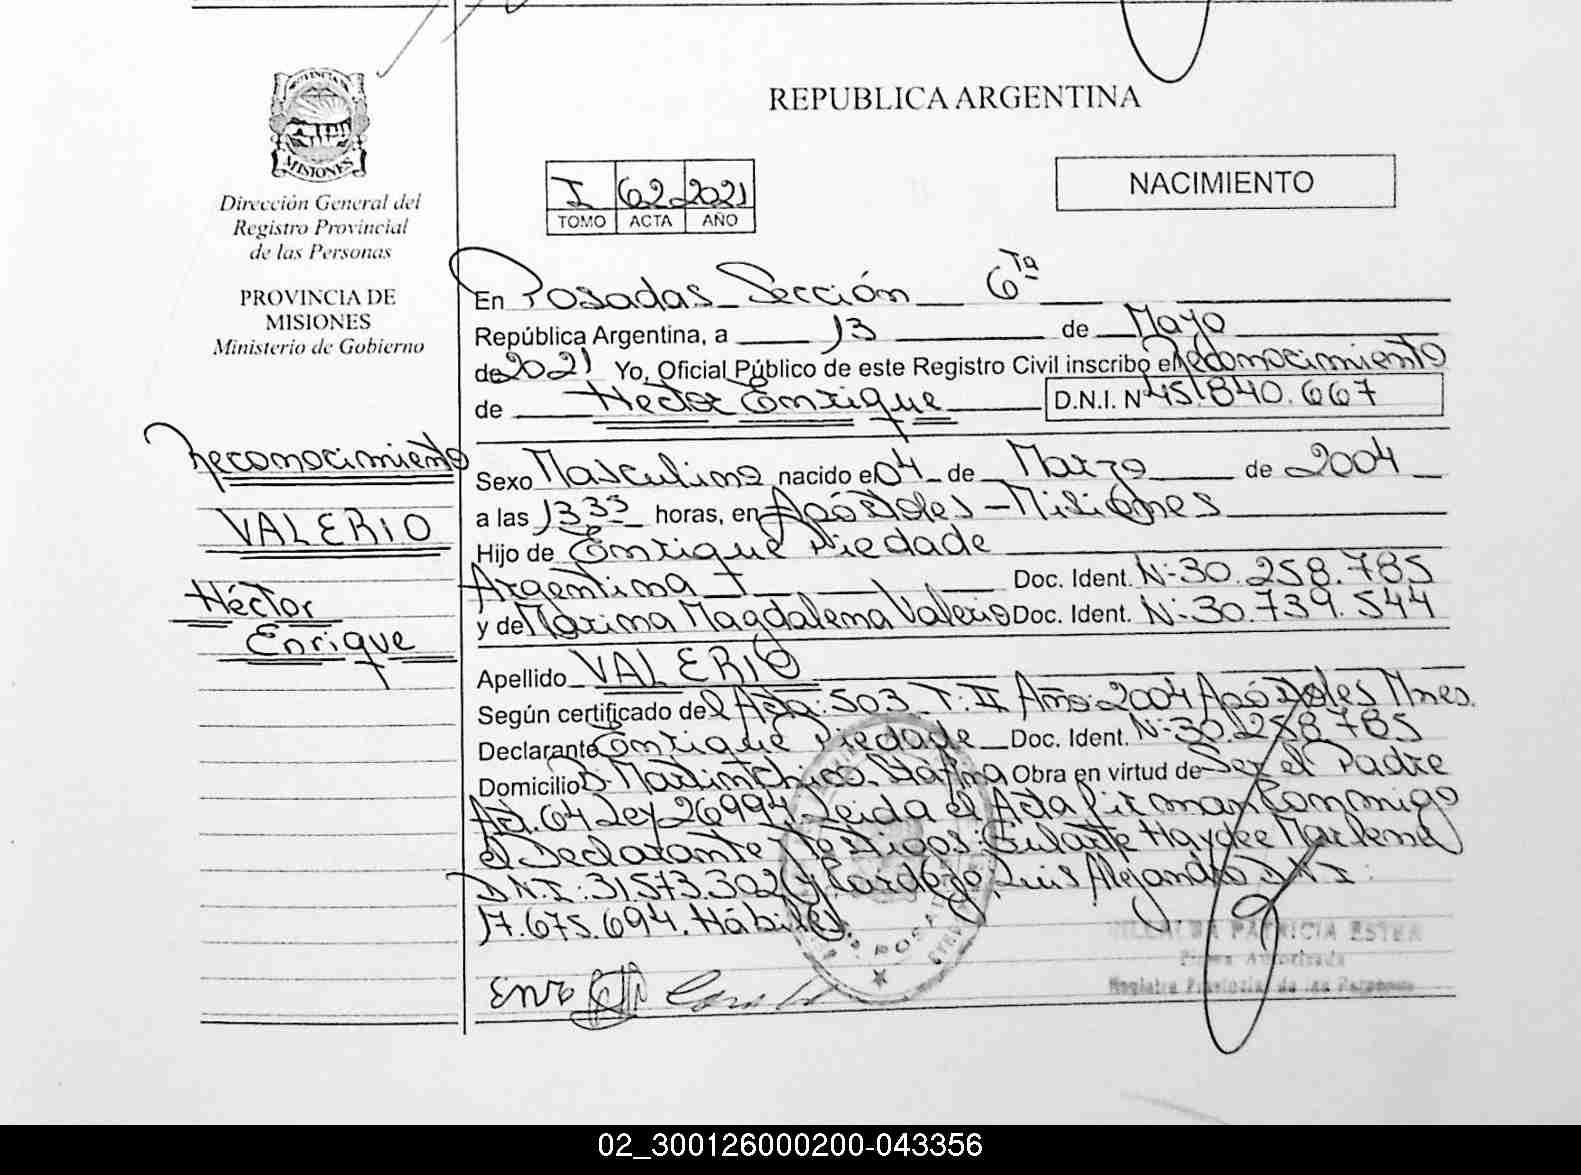 PROVINCIA DE
MISIONES
Dirección General del
Registro Provincial
de las Personas
PROVINCIA DE
MISIONES
Ministerio de Gobierno
Reconocimiento
VALERIO
Héctor
Enrique
REPUBLICA ARGENTINA
I 62 2021
TOMO ACTA AÑO
NACIMIENTO
En Posadas Sección 6ta
República Argentina, a 13 de Mayo
de 2021 Yo, Oficial Público de este Registro Civil inscribo el Reconocimiento
de Héctor Enrique D.N.I. Nº 45.840.667
Sexo Masculino nacido el 04 de Marzo de 2004
a las 13 35 horas, en Apóstoles - Misiones
Hijo de Enrique Piedade
Argentina Doc. Ident. Nº 30.258.785
y de Marina Magdalena Valerio Doc. Ident. Nº 30.739.544
Apellido VALERIO
Según certificado del Acta: 503 T: II Año: 2004 Apóstoles Mnes.
Declarante Enrique Piedade Doc. Ident. Nº 30.258.785
Domicilio Bº Martin Chico Obra en virtud de Ser el Padre
Art. 64 Ley 26994 Leida el Acta firman Conmigo
el Declarante Testigos: Gularte Haydee Marlene
D.N.I: 31.573.302 y Cardozo Luis Alejandro D.N.I:
17.675.694. Hábiles.
POSADAS
VILLALBA PATRICIA ESTER
Firma Autorizada
Registro Provincial de las Personas
02_300126000200-043356